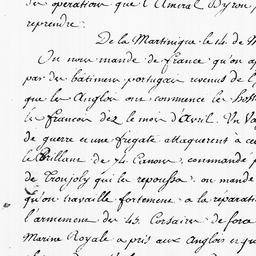 des operations que l'Amiral Byron
reprendre.
De la Martinique le 14 de M
On nous mande de france qu'on a
par des bâtimens portugais revenus de l
que les Anglois ont commencé les host
les francois dez le mois d'Avril. Un Va
de guerre et une fregate attaquerent à ce
le Brillant de 74 Canons, commandé p
de Tronjoly qui les repoussa. on mande
qu'on travaille fortement a la réparation
l'armement de 45 Corsaires de force
Marine Royale a pris aux Anglois